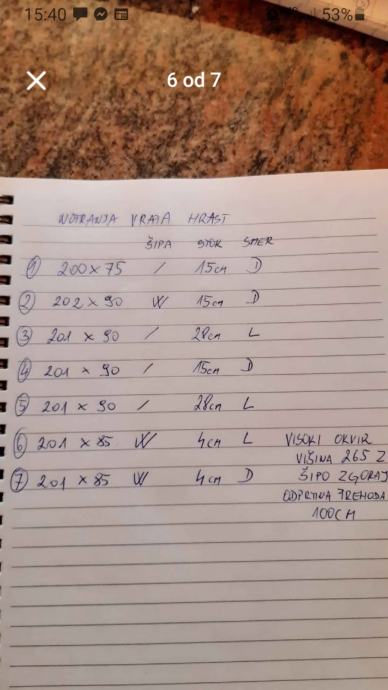 15:40 53%
6 od 7
NOTRANJA VRATA HRAST
ŠIPA STOK SMER
1 200 x 75 / 15cm D
2 202 x 90 W 15cm D
3 201 x 90 / 28cm L
4 201 x 90 / 15cm D
5 201 x 90 / 28cm L
6 201 x 85 W 4cm L VISOKI OKVIR
VIŠINA 265 Z
7 201 x 85 W 4cm D ŠIPO ZGORAJ
ODPRTINA PREHODA
100CM